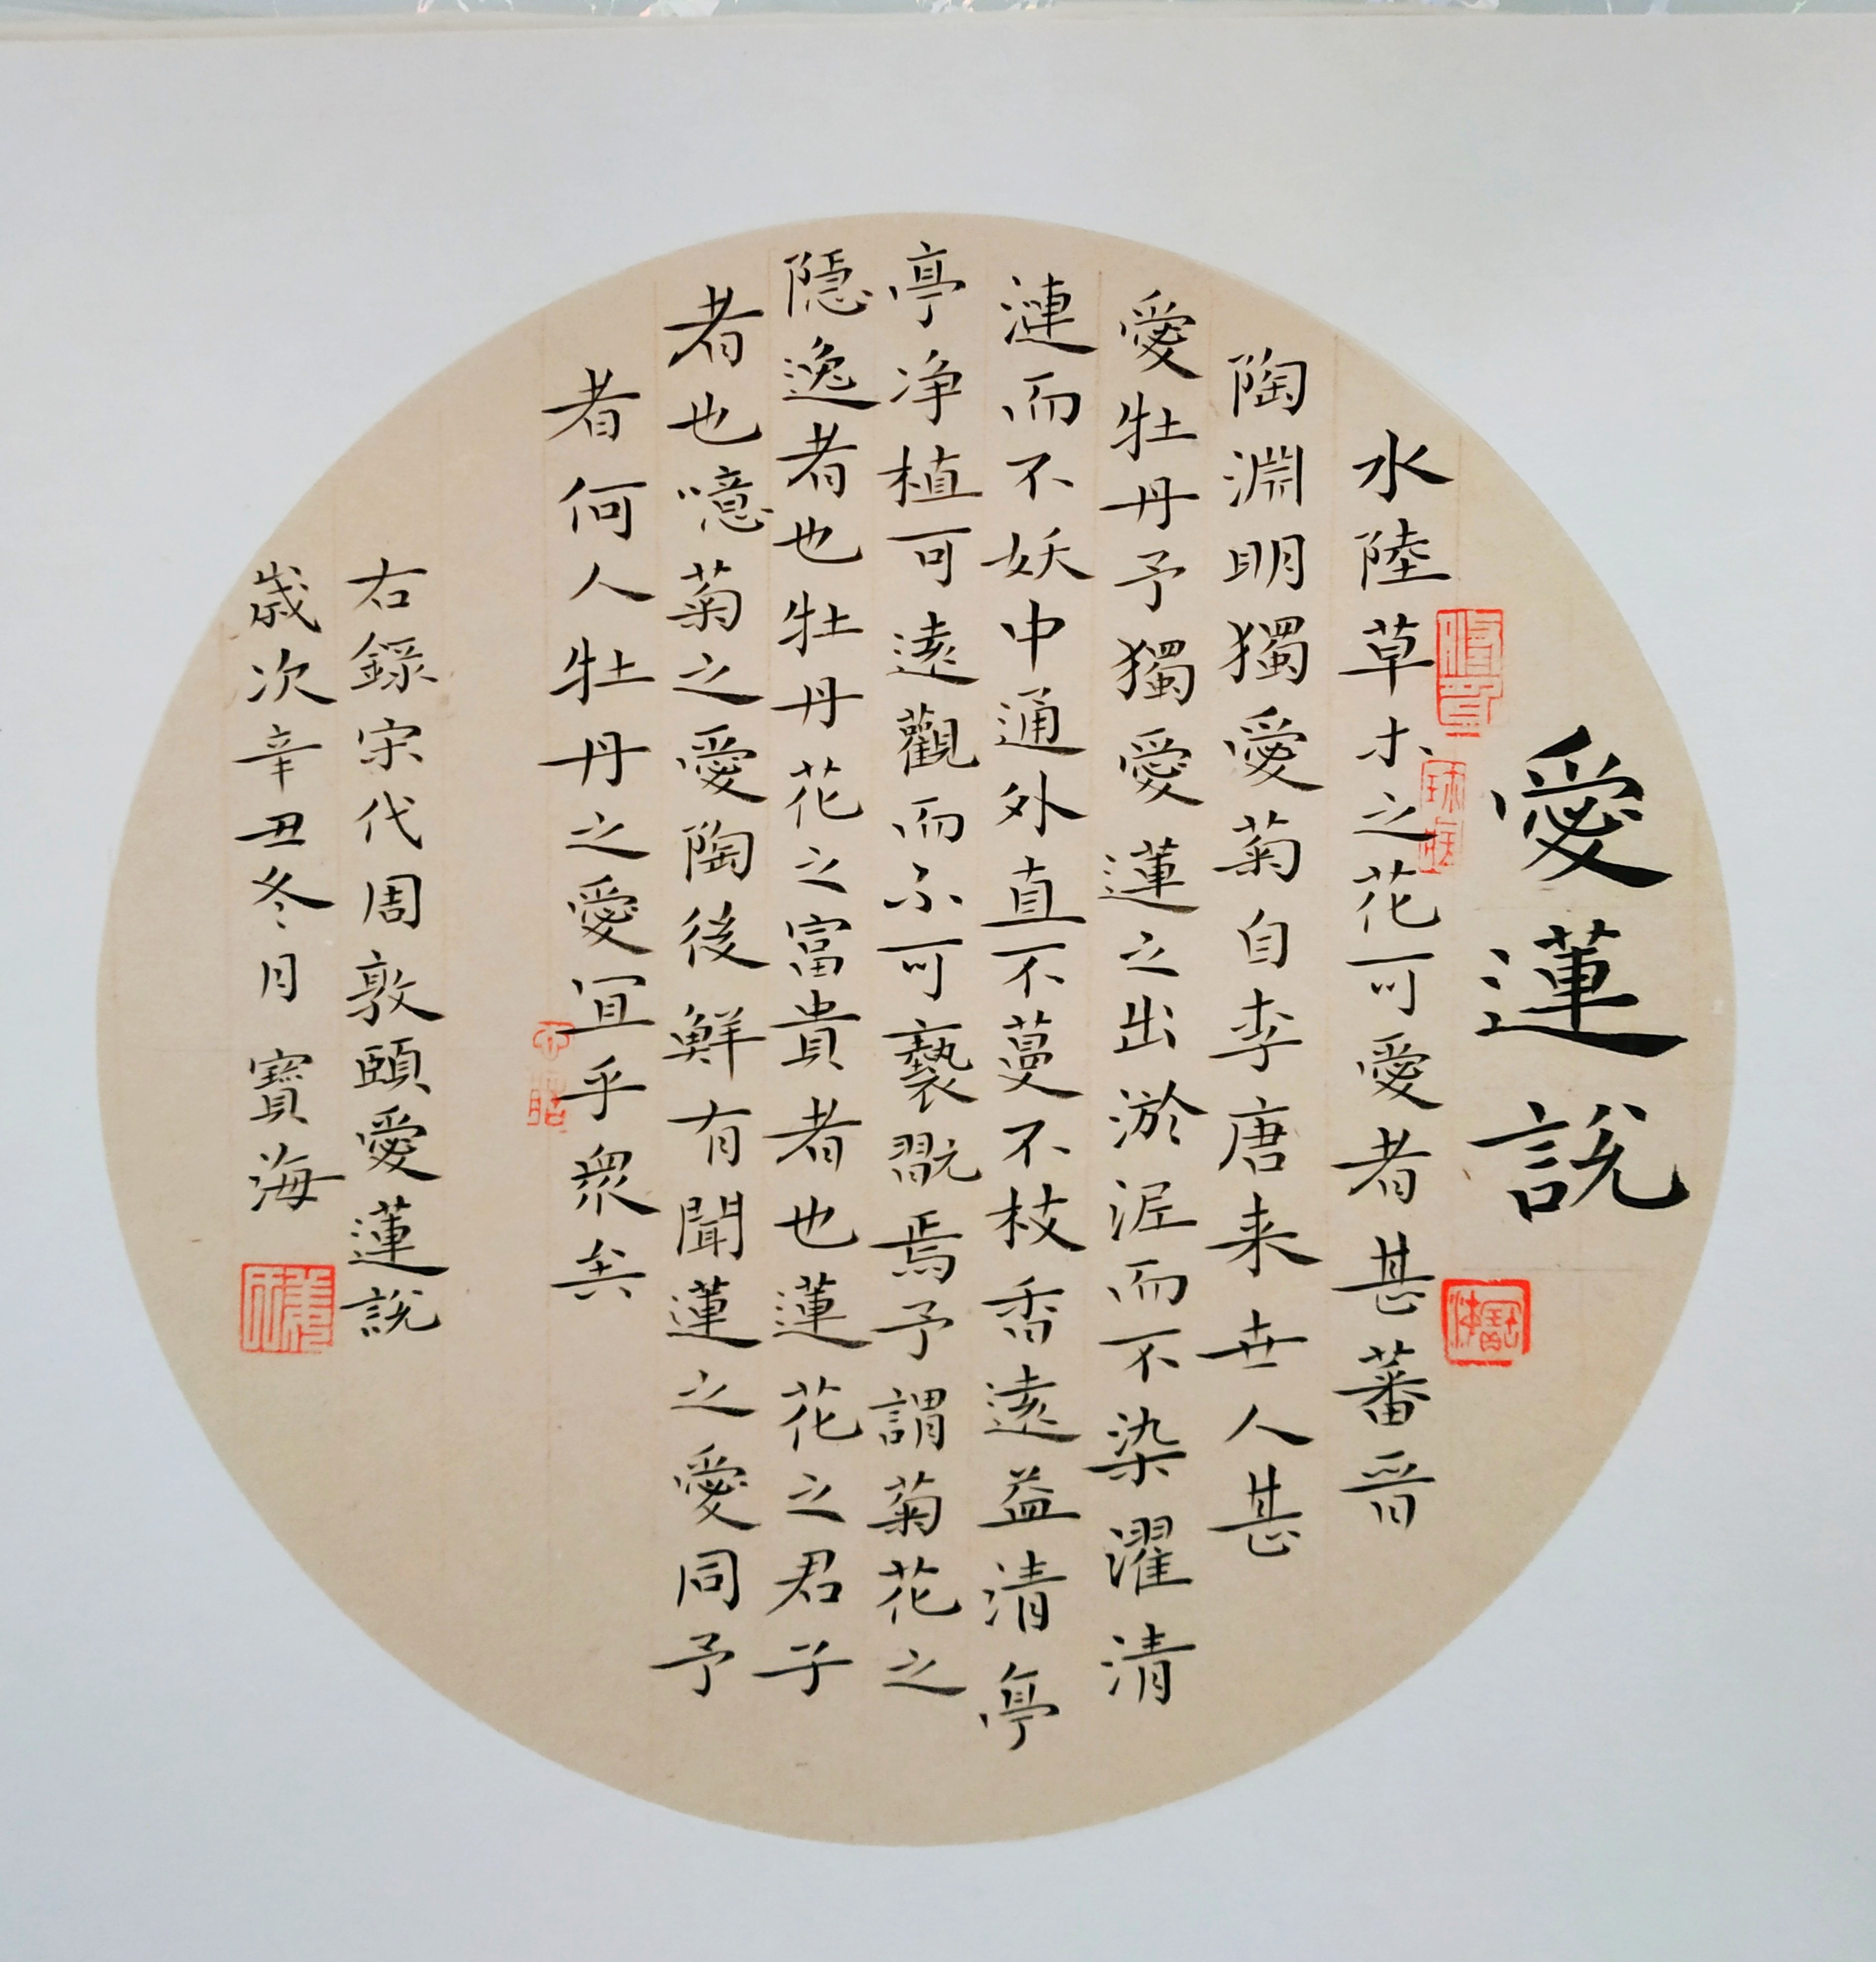 愛蓮說
水陸草木之花可愛者甚蕃晉
陶淵明獨愛菊自李唐来世人甚
愛牡丹予獨愛蓮之出淤泥而不染濯清
漣而不妖中通外直不蔓不枝香遠益清亭
亭净植可遠觀而不可褻翫焉予謂菊花之
隱逸者也牡丹花之富貴者也蓮花之君子
者也噫菊之愛陶後鮮有聞蓮之愛同予
者何人牡丹之愛宜乎衆矣
右錄宋代周敦頤愛蓮說
歲次辛丑冬月寶海